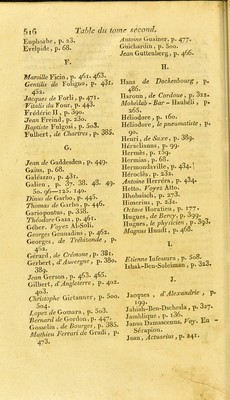 516 Table du tome second.
Euphorbe, p. 23.
Evelpide, p. 68.
F.
Marsille Ficin, p. 461. 463.
Gentilis de Foligno, p. 431,
452.
Jacques de Forli, p. 471.
Vitalis de Four, p. 448.
Frédéric II, p. 390.
Jean Freind, p. 230.
Baptiste Fulgosi, p. 503.
Fulbert, de Chartres, p. 385.
G.
Jean de Gaddesden, p. 449.
Gaïus, p. 68.
Galéazzo, p. 431.
Galien, p. 37. 38. 48. 49.
50. 96—125. 140.
Dinus de Garbo, p. 445.
Thomas de Garbo, p. 446.
Gariopontus, p. 358.
Théodore Gaza, p. 461.
Géber. Voyez Al-Soli.
Georges Gennadius, p. 462.
Georges, de Trébisonde, p.
462.
Gérard, de Crémone, p. 381.
Gerbert, d'Auvergne, p. 380.
389.
Jean Gerson, p. 463. 465.
Gilbert, d'Angleterre, p. 402.
403.
Christophe Girtanner, p. 500.
504.
Lopez de Gomara, p. 503.
Bernard de Gordon, p. 447.
Gosselin, de Bourges, p. 385.
Mathieu Ferrari de Gradi, p.
473.
Antoine Guainer, p. 477.
Guichardin, p. 500.
Jean Guttenberg, p. 466.
H.
Hans de Dockenbourg, p.
486.
Haroun, de Cordoue, p. 322.
Mohédab-Bar-Haubeli, p.
265.
Héliodore, p. 160.
Héliodore, le pneumatiste, p.
90.
Henri, de Saxe, p. 389.
Héraclianus, p. 99.
Hermès, p. 159.
Hermias, p. 68.
Hermondaville, p. 434.
Héroclès, p. 231.
Antoine Herréra, p. 434.
Hetto. Voyez Atto.
Hhobaisch, p. 273.
Himerius, p. 231.
Octave Horatien, p. 177.
Hugues, de Bercy, p. 399.
Hugues, le physicien, p. 393.
Magnus Hundt, p. 468.
I.
Etienne Infessura, p. 508.
Ishak-Ben-Soleiman, p. 323.
J.
Jacques, d'Alexandrie, p.
199.
Jahiah-Ben-Dschesla, p. 327.
Jamblique, p. 136.
Janus Damascenus. Voy. En-
Sérapion.
Jean, Actuarius, p. 241.